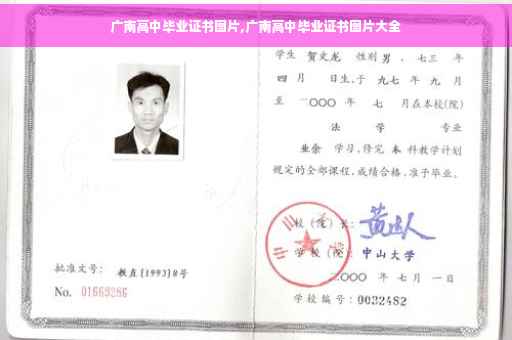 广南高中毕业证书图片,广南高中毕业证书图片大全
学生 贺文龙 性别 男 、七三 年
四 月 日生,于 九七 年 九 月
至 二〇〇〇 年 七 月在本校(院)
法 学 专业
业余 学习,修完 本 科教学计划
规定的全部课程,成绩合格,准予毕业。
校 (院) 长:
学 校 (院): 中山大学
二〇〇〇 年 七 月 一 日
学校编号: 0032482
批准文号: 教直[1993]8号
No. 01669286